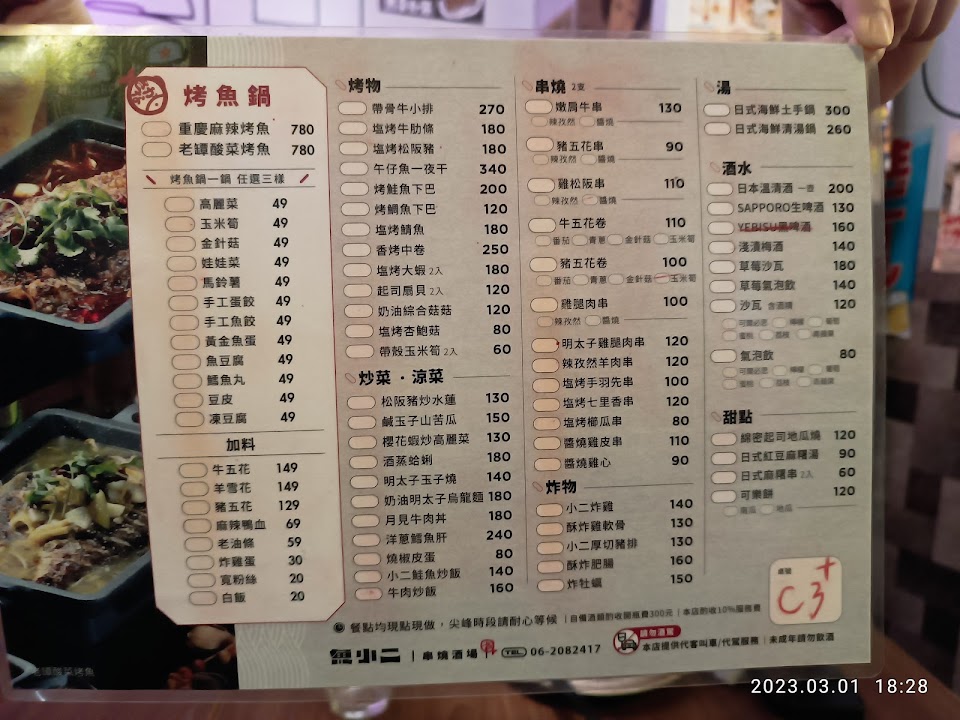 烤魚鍋
重慶麻辣烤魚 780
老罈酸菜烤魚 780
烤魚鍋一鍋 任選三樣
高麗菜 49
玉米筍 49
金針菇 49
娃娃菜 49
馬鈴薯 49
手工蛋餃 49
手工魚餃 49
黃金魚蛋 49
魚豆腐 49
鱈魚丸 49
豆皮 49
凍豆腐 49
加料
牛五花 149
羊雪花 149
豬五花 129
麻辣鴨血 69
老油條 59
炸雞蛋 30
寬粉絲 20
白飯 20
老罈酸菜烤魚
烤物
帶骨牛小排 270
塩烤牛肋條 180
塩烤松阪豬 180
午仔魚一夜干 340
烤鮭魚下巴 200
烤鯛魚下巴 120
塩烤鯖魚 180
香烤中卷 250
塩烤大蝦 2入 180
起司扇貝 2入 120
奶油綜合菇菇 120
塩烤杏鮑菇 80
帶殼玉米筍 2入 60
炒菜・涼菜
松阪豬炒水蓮 130
鹹玉子山苦瓜 150
櫻花蝦炒高麗菜 130
酒蒸蛤蜊 180
明太子玉子燒 140
奶油明太子烏龍麵 180
月見牛肉丼 180
洋蔥鱈魚肝 240
燒椒皮蛋 80
小二鮭魚炒飯 140
牛肉炒飯 160
串燒 2支
嫩肩牛串 130
辣孜然 醬燒
豬五花串 90
辣孜然 醬燒
雞松阪串 110
辣孜然 醬燒
牛五花卷 110
番茄 青蔥 金針菇 玉米筍
豬五花卷 100
番茄 青蔥 金針菇 玉米筍
雞腿肉串 100
辣孜然 醬燒
明太子雞腿肉串 120
辣孜然羊肉串 120
塩烤手羽先串 100
塩烤七里香串 120
塩烤櫛瓜串 80
醬燒雞皮串 110
醬燒雞心 90
炸物
小二炸雞 140
酥炸雞軟骨 130
小二厚切豬排 130
酥炸肥腸 160
炸牡蠣 150
湯
日式海鮮土手鍋 300
日式海鮮清湯鍋 260
酒水
日本溫清酒 一壺 200
SAPPORO生啤酒 130
YEBISU黑啤酒 160
淺漬梅酒 140
草莓沙瓦 180
草莓氣泡飲 140
沙瓦 含酒精 120
可爾必思 檸檬 葡萄
蜜桃 荔枝
氣泡飲 80
可爾必思 檸檬 葡萄
蜜桃 荔枝
甜點
綿密起司地瓜燒 120
日式紅豆麻糬湯 90
日式麻糬串 2入 60
可樂餅 120
南瓜 地瓜
桌號
C3+
餐點均現點現做，尖峰時段請耐心等候 | 自備酒類酌收開瓶費300元 | 本店酌收10%服務費
魚小二 | 串燒酒場 TEL 06-2082417
請勿酒駕
本店提供代客叫車/代駕服務 | 未成年請勿飲酒
2023.03.01 18:28